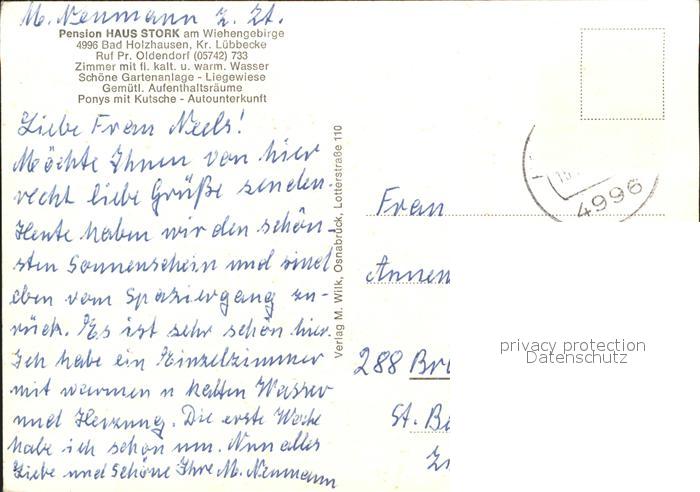 M. Neumann z. Zt.
Pension HAUS STORK am Wiehengebirge
4996 Bad Holzhausen, Kr. Lübbecke
Ruf Pr. Oldendorf (05742) 733
Zimmer mit fl. kalt. u. warm. Wasser
Schöne Gartenanlage - Liegewiese
Gemütl. Aufenthaltsräume
Ponys mit Kutsche - Autounterkunft
Liebe Frau Neels!
Möchte Ihnen von hier
recht liebe Grüße senden.
Heute haben wir den schön-
sten Sonnenschein und sind
eben vom Spaziergang zu-
rück. Es ist sehr schön hier.
Ich habe ein Einzelzimmer
mit warmen u kalten Wasser
und Heizung. Die erste Woche
habe ich schon um. Nun alles
Liebe und Schöne Ihre M. Neumann
Verlag M. Wilk, Osnabrück, Lotterstraße 110
4996
Frau
Annem
288 Br
St. Be
privacy protection
Datenschutz